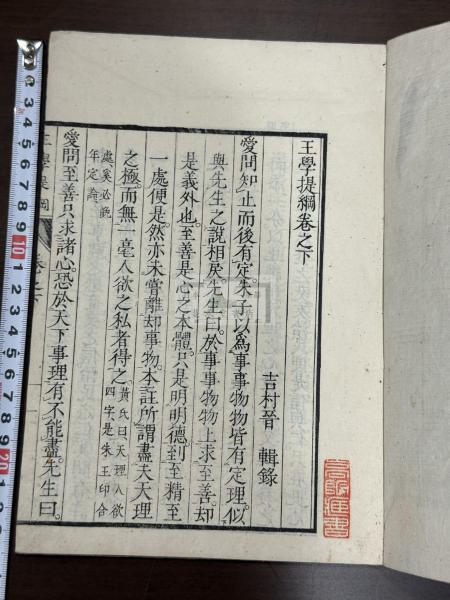 王學提綱卷之下
吉村晉 輯錄
愛問知止而後有定。朱子以爲事事物物皆有定理。似
與先生之說相戾。先生曰。於事事物物上求至善。却
是義外也。至善是心之本體。只是明明德。到至精至
一處便是。然亦未嘗離却事物。本註所謂盡夫天理
之極。而無一毫人欲之私者得之。黃氏曰。天理人欲四字是朱王印合
處。奚必晚年定論。
愛問至善只求諸心。恐於天下事理有不能盡。先生曰。